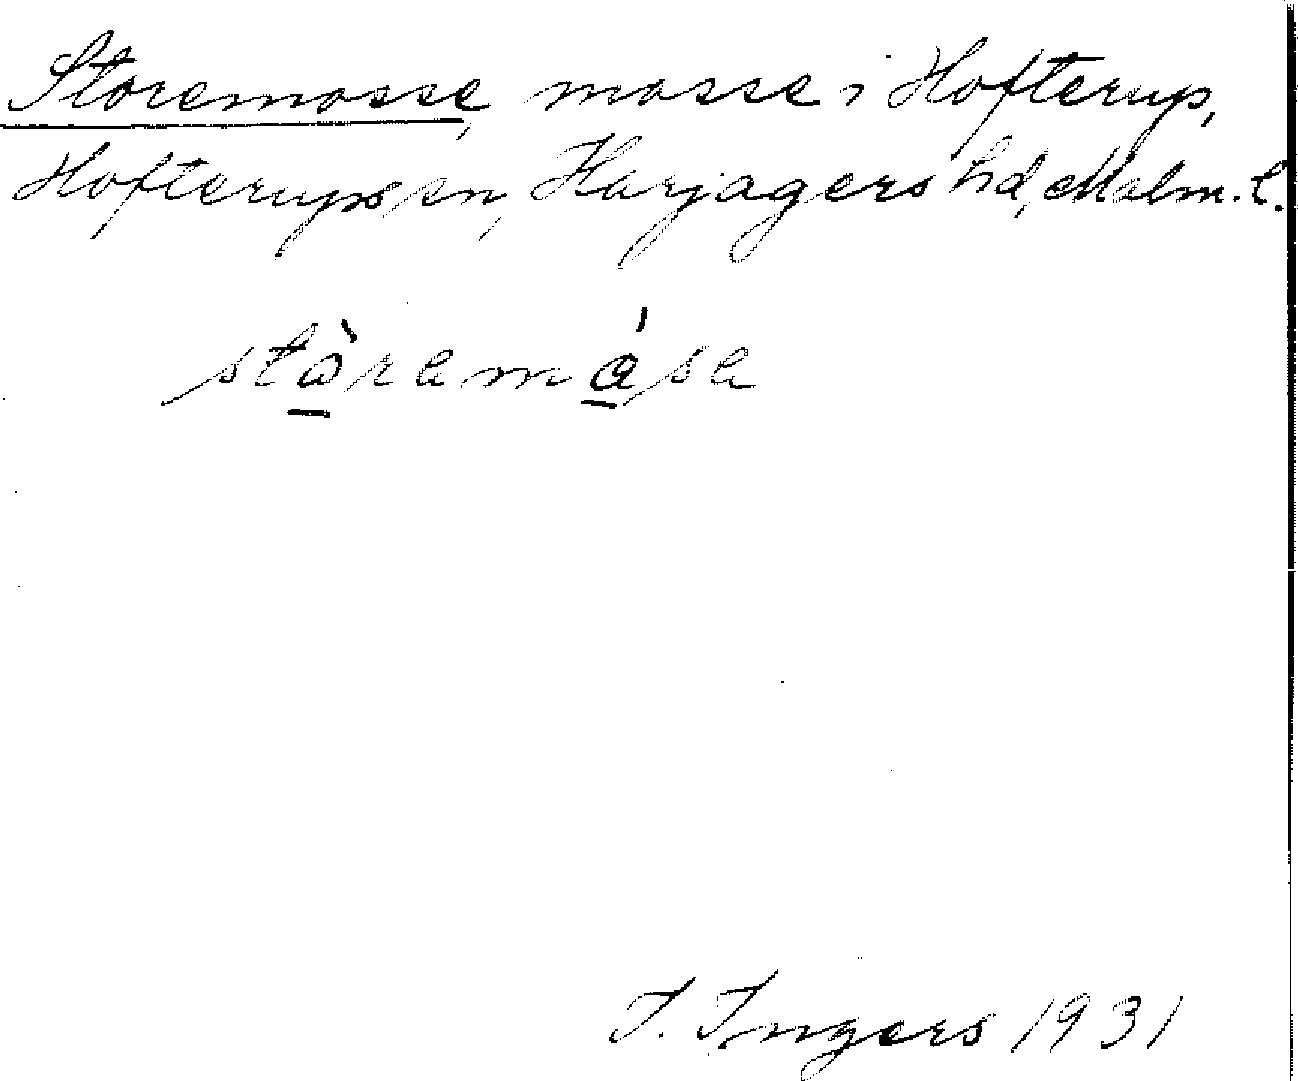 Storemosse, mosse i Hofterup,
Hofterups sn, Harjagers hd, Malm. l.
stòramása
I. Ingers 1931